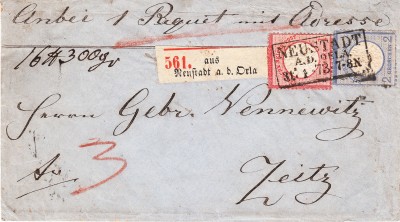 Anbei 1 Paquet mit Adresse
16 ℔ 300 gr
561.
aus
Neustadt a. d. Orla
NEUSTADT
A.D.
31 1 72 7-8N
Herren Gebr. Nennewitz
3
Zeitz